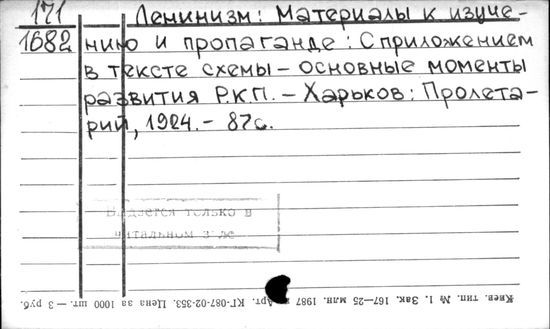 171 Ленинизм: Материалы к изуче-
1682 нию и пропаганде: С приложением
в тексте схемы – основные моменты
развития Р.К.П. – Харьков: Пролета-
рий, 1924. – 87 с.
Выдается только в
читальном зале
Киев. тип. № 1. Зак. 167—25 млн. 1987 г. Арт. КГ-087-02-353. Цена за 1000 шт. — 3 руб.